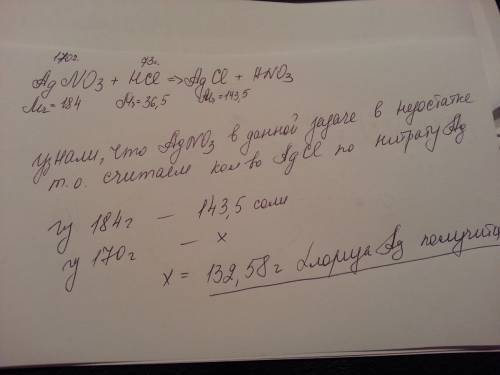 170г. 73г.
AgNO3 + HCl => AgCl + HNO3
Mr=184 Mr=36,5 Mr=143,5
узнали, что AgNO3 в данной задаче в недостатке
т.о. считаем кол-во AgCl по нитрату Ag
из 184г — 143,5 соли
из 170г — x
x = 132,58г хлорида Ag получится